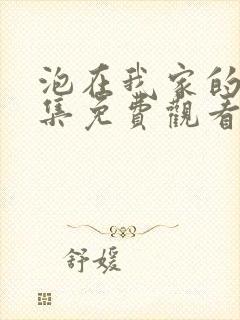 泡在我家的
集免費觀看
舒媛